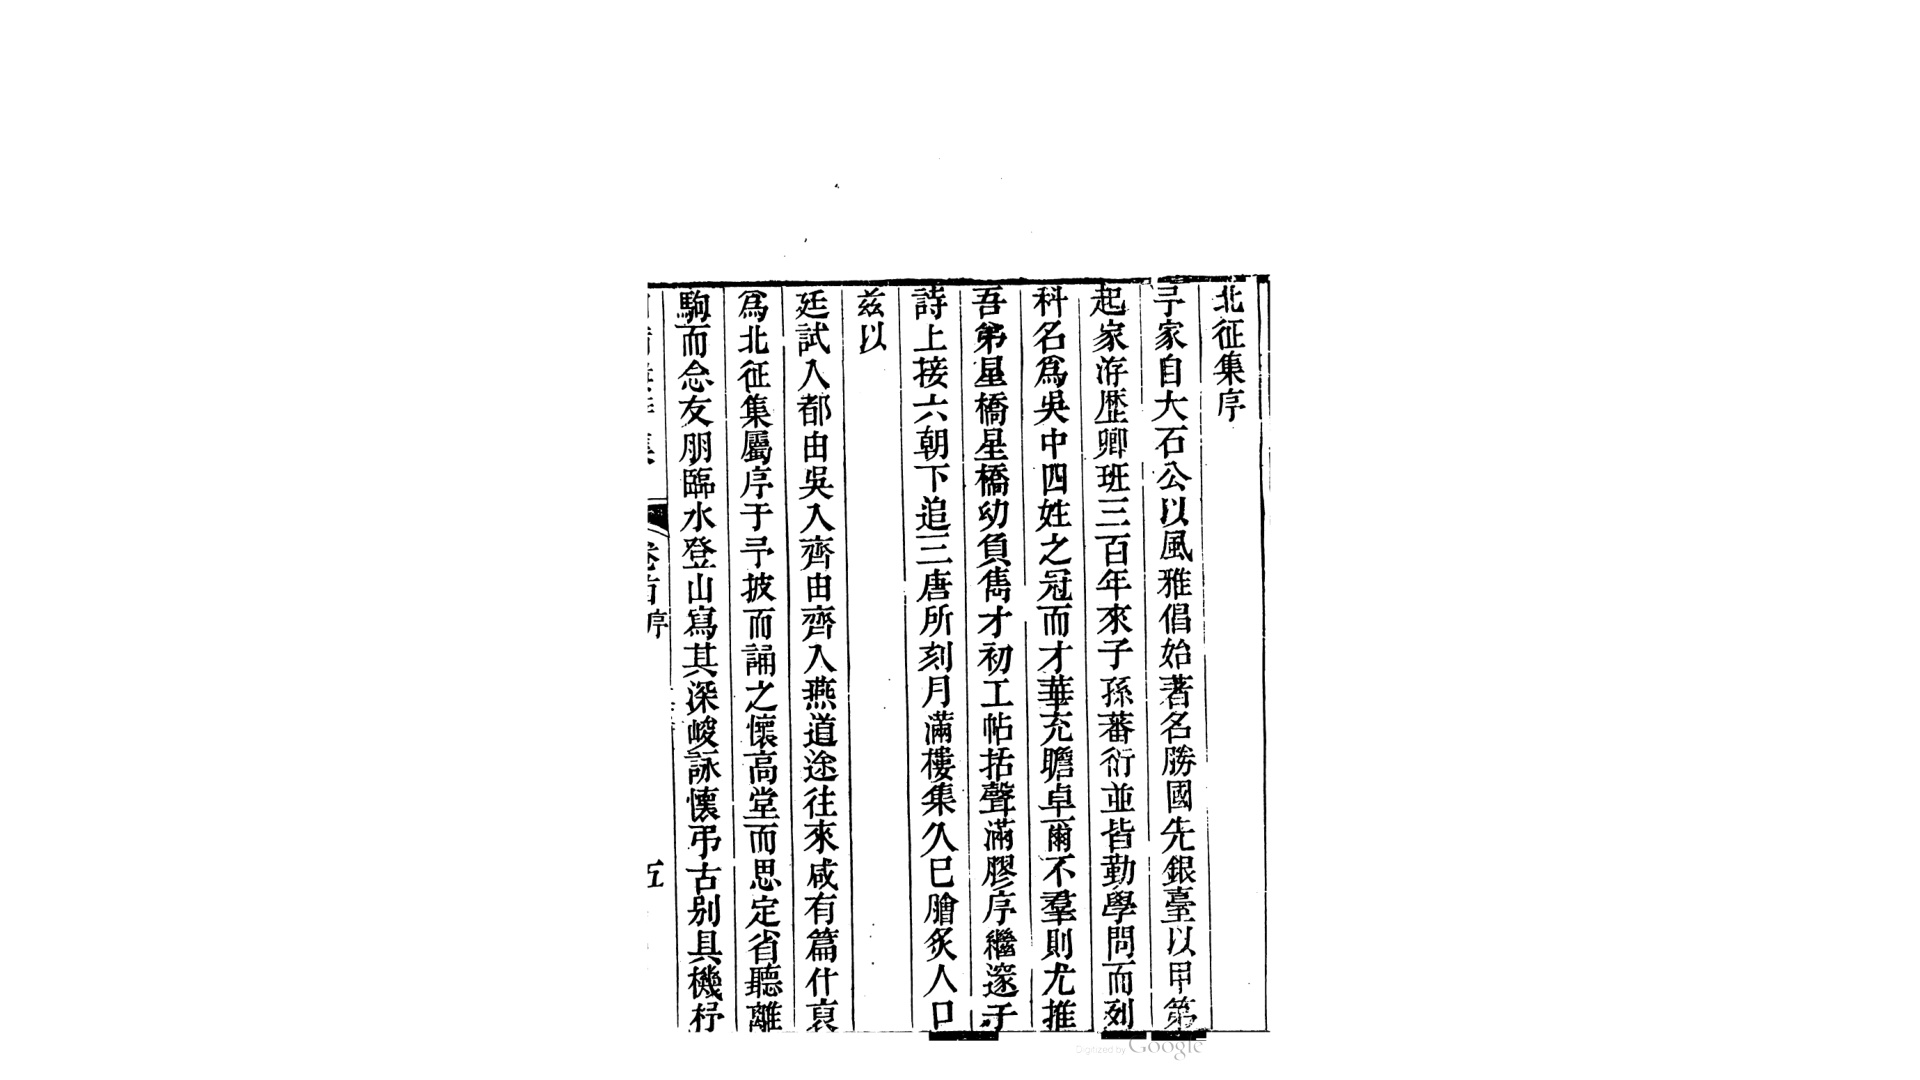 北征集序
予家自大石公以風雅倡始著名勝國先銀臺以甲第
起家洊歴卿班三百年來子孫蕃衍並皆勤學問而列
科名爲吳中四姓之冠而才華充贍卓爾不羣則尤推
吾弟星橋星橋幼負雋才初工帖括聲滿膠序繼邃于
詩上接六朝下追三唐所刻月滿樓集久已膾炙人口
兹以
廷試入都由吳入齊由齊入燕道途往來咸有篇什裒
爲北征集屬序于予披而誦之懷高堂而思定省聽離
駒而念友朋臨水登山寫其深峻詠懷弔古别具機杼
集 卷首序 五
Digitized by Google